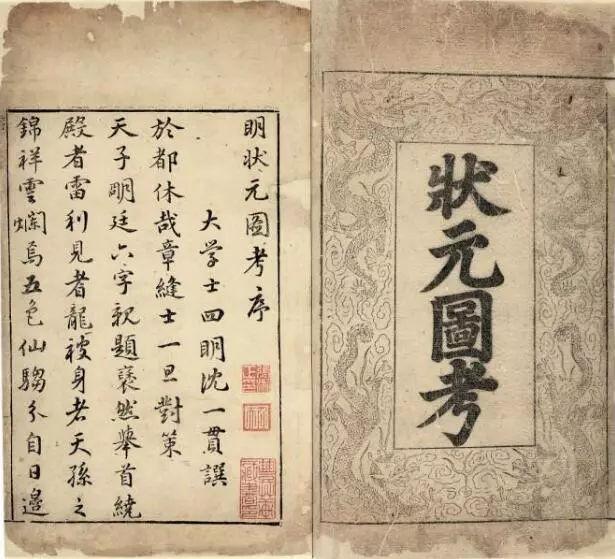 狀元圖考
明狀元圖考序
大学士四明沈一貫譔
於都休哉章縫士一旦對策
天子明廷六字親題裒然舉首繞
殿者雷利見者龍被身者天孫之
錦祥雲爛焉五色仙騶夰自日邊